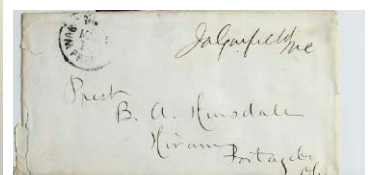 WAS
FREE
JaGarfield MC
Prest
B. A. Hinsdale
Hiram
Portage Co
O.